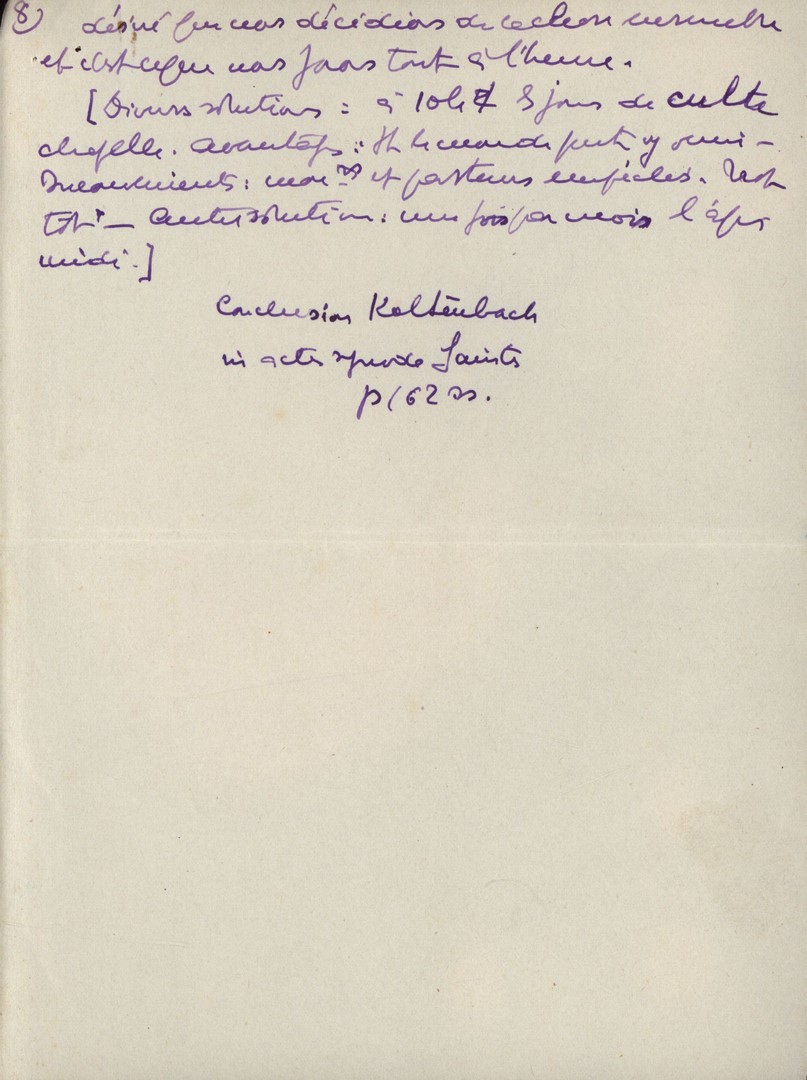 8) désiré que nous décidions de la chose
et c'est ce que nous ferons tout à l'heure.
[Diverses solutions : à 10h jours de culte
chapelle. Avantages : tt le monde peut y venir –
Inconvénients : mon et pasteurs empêchés.
– Autre solution : une fois par mois l'après
midi.]
Conclusion Koltenbach
in actes synode Saintes
p 162 ss.